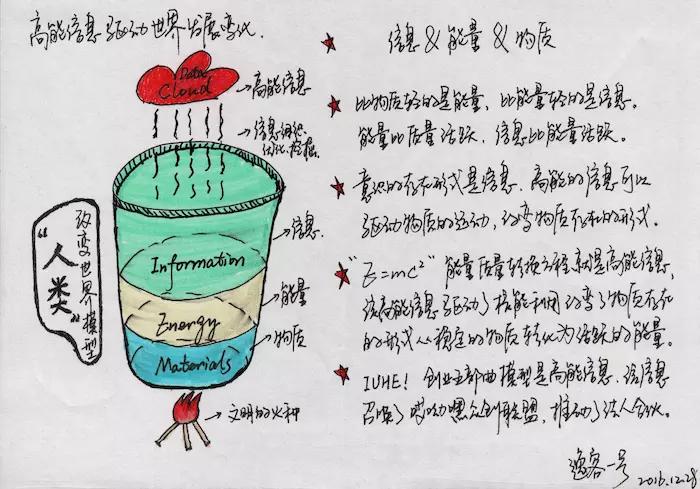 高能信息驱动世界发展变化.
Data
Cloud
高能信息
信息
优化.
信息.
Information
能量
Energy
物质
Materials
文明的火种
改变世界模型
“人类”
信息 & 能量 & 物质
比物质轻的是能量、比能量轻的是信息。
能量比质量活跃、信息比能量活跃。
意识的存在形式是信息、高能的信息可以
驱动物质的运动,改变物质存在的形式.
“E=mc²” 能量质量转换方程就是高能信息,
该高能信息驱动了核能利用改变了物质存在
的形式从稳定的物质转化为活跃的能量。
IUHE! 创业五部曲模型是高能信息、该信息
召唤了哎呦嘿众创联盟,推动了法人合伙。
逸客一号
2016.12.28